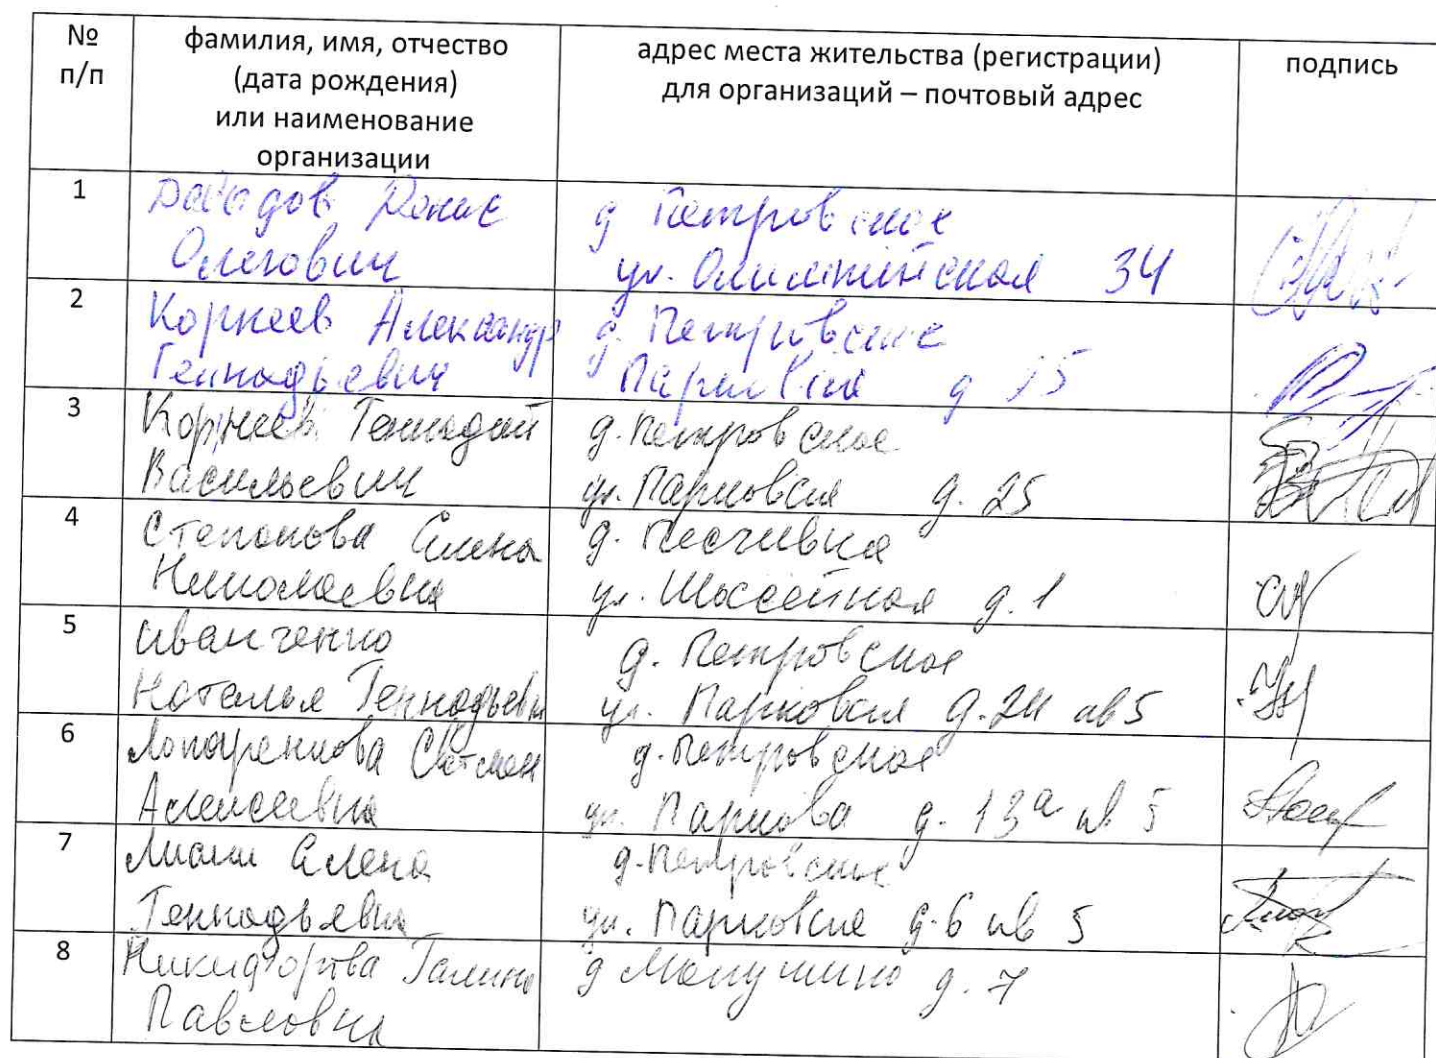 № п/п
фамилия, имя, отчество (дата рождения) или наименование организации
адрес места жительства (регистрации) для организаций – почтовый адрес
подпись
1
Давыдов Денис
Олегович
д Петровское
ул. Олимпийская 34
2
Корнеев Александр
Геннадьевич
д. Петровское
Парковая д 15
3
Корнеев Геннадий
Васильевич
д. Петровское
ул. Парковая д. 25
4
Степанова Елена
Николаевна
д. Песчивка
ул. Шоссейная д. 1
5
Иванченко
Наталья Геннадьевна
д. Петровское
ул. Парковая д. 24 кв 5
6
Лопаренкова
Алексеевна
д. Петровское
ул. Паркова д. 13а кв 5
7
Елена
Геннадьевна
д. Петровское
ул. Парковая д. 6 кв 5
8
Никифорова Галина
Павловна
д д. 7